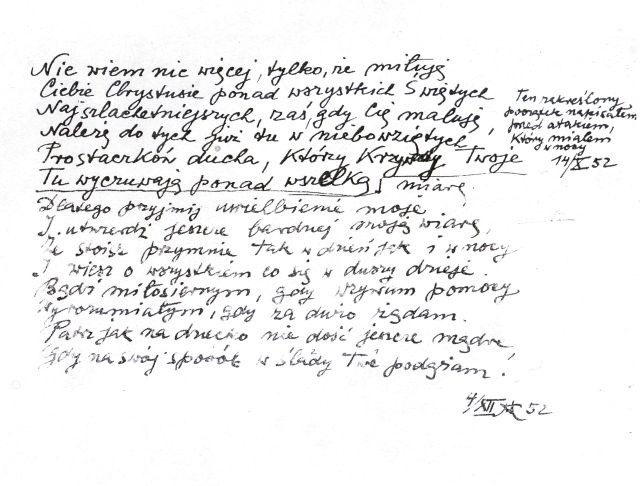 Nie wiem nic więcej, tylko, że miłuję
Ciebie Chrystusie ponad wszystkich Świętych
Najszlachetniejszych, zaś, gdy Cię maluję,
Należę do tych już tu w niebowziętych
Prostaczków ducha, Który Krzywdy Twoje
Tu wyczuwają ponad wszelką miarę.
Dlatego przyjmij uwielbienie moje
I utwierdź jeszcze bardziej moją wiarę,
Że stoisz przymnie tak w dzień jak i w nocy
I wiesz o wszystkiem co się w duszy dzieje.
Bądź miłosiernym, gdy wzywam pomocy
Wyrozumiałym, gdy za dużo żądam.
Patrz jak na dziecko nie dość jeszcze mądre
Gdy na swój sposób w ślady Twe podążam!
4/XII 52
Ten zakreślony
początek napisałem
przed atakiem,
który miałem
w nocy
14/X 52